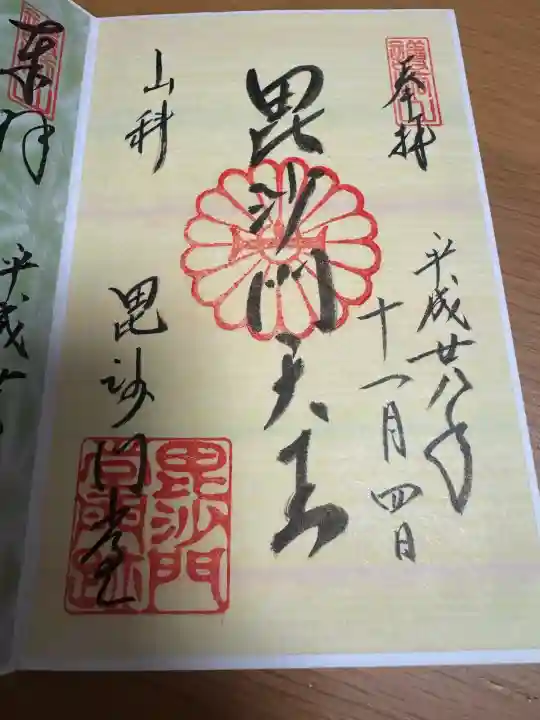 奉拝
平成廿八年
十一月四日
毘沙門天王
山科
毘沙門堂
毘沙門
堂門跡
奉拝
平成廿